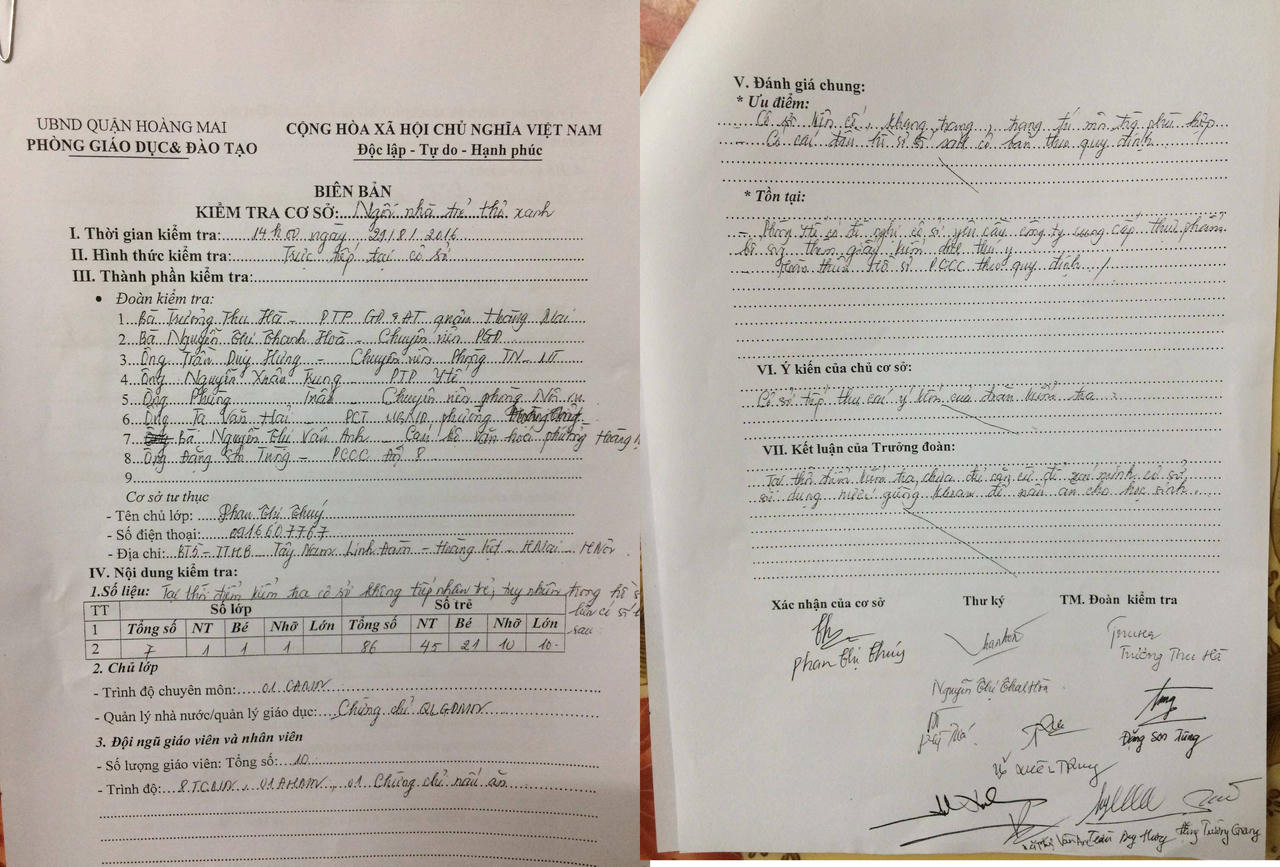 UBND QUẬN HOÀNG MAI
PHÒNG GIÁO DỤC& ĐÀO TẠO
CỘNG HÒA XÃ HỘI CHỦ NGHĨA VIỆT NAM
Độc lập - Tự do - Hạnh phúc
BIÊN BẢN
KIỂM TRA CƠ SỞ: Ngôi nhà trẻ thơ xanh
I. Thời gian kiểm tra: 14h00 ngày
II. Hình thức kiểm tra: Trực tiếp tại cơ sở
III. Thành phần kiểm tra:
• Đoàn kiểm tra:
1. Bà Trương Thu Hà - PTP GD&ĐT quận Hoàng Mai
2. Bà Nguyễn Thị Thanh Hoà - Chuyên viên PGD
3. Ông Trần Duy Hưng - Chuyên viên Phòng
4. Ông Nguyễn Xuân Trung - PTP Y tế
5. Ông Phùng - Chuyên viên phòng Nội vụ
6. Ông Tạ Văn Hai - PCT UBND phường
7. Bà Nguyễn Thị Vân Anh - Cán bộ văn hoá phường Hoàng
8. Ông Đặng Sơn Tùng - PCCC
9.
Cơ sở tư thục
- Tên chủ lớp: Phan Thị Thuý
- Số điện thoại: 0916607767
- Địa chỉ: BT5 - Tây Nam Linh Đàm - Hoàng Liệt - HMai - HNội
IV. Nội dung kiểm tra:
1.Số liệu: Tại thời điểm kiểm tra cơ sở không tiếp nhận trẻ, tuy nhiên trong hồ s
TT Số lớp Số trẻ
1 Tổng số NT Bé Nhỡ Lớn Tổng số NT Bé Nhỡ Lớn sau:
2 7 1 1 1 86 45 21 10 10
2. Chủ lớp
- Trình độ chuyên môn: 01 CĐMN
- Quản lý nhà nước/quản lý giáo dục: Chứng chỉ QLGDMN
3. Đội ngũ giáo viên và nhân viên
- Số lượng giáo viên: Tổng số: 10
- Trình độ: 8 TCMN, 01 ĐHMN, 01 Chứng chỉ nấu ăn
V. Đánh giá chung:
* Ưu điểm:
- Cơ sở kiên cố, khang trang, trang trí môi trg phù hợp
- Có cải đầu tư cơ sở vc cơ bản theo quy định
* Tồn tại:
- Phòng Y tế có đề nghị cơ sở yêu cầu công ty cung cấp thực phẩm
bổ sung thêm giấy kiểm dịch thú y
- Hoàn thiện hồ sơ PCCC theo quy định ./
VI. Ý kiến của chủ cơ sở:
Cơ sở tiếp thu các ý kiến của đoàn kiểm tra.
VII. Kết luận của Trưởng đoàn:
Tại thời điểm kiểm tra, chưa đủ căn cứ để xác minh cơ sở
sử dụng nước giếng khoan để nấu ăn cho học sinh.
Xác nhận của cơ sở Thư ký TM. Đoàn kiểm tra
Phan Thị Thuý
Trương Thu Hà
Đặng Sơn Tùng
Trần Duy Hưng